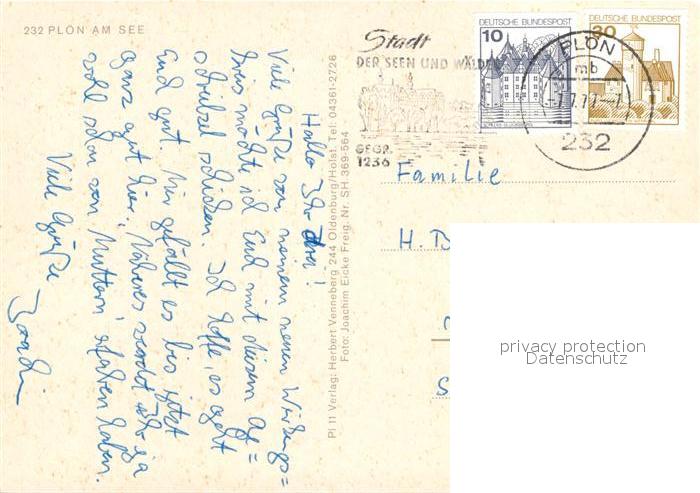 232 PLÖN AM SEE
Hallo Ihr drei!
Viele Grüße von meinem neuen Wirkungs=
kreis möchte ich Euch mit diesem Ge=
schicken. Ich hoffe, es geht
Euch gut. Mir gefällt es bis jetzt
ganz gut hier. Näheres werdet Ihr ja
wohl schon von Muttern haben.
Viele Grüße
Pl 11 Verlag: Herbert Venneberg 244 Oldenburg/Holst. Tel: 04361-2726
Foto: Joachim Eicke Freig. Nr. SH 369-564
Stadt
DER SEEN UND WÄLDER
GEGR.
1236
DEUTSCHE BUNDESPOST
10
DEUTSCHE BUNDESPOST
30
PLÖN
mb
-7.7.77.-7
232
Familie
H. B
S
privacy protection
Datenschutz